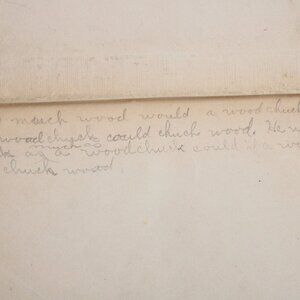 much wood would a woodchuck
woodchuck could chuck wood. He w
as much as a woodchuck could if a wo
chuck wood.